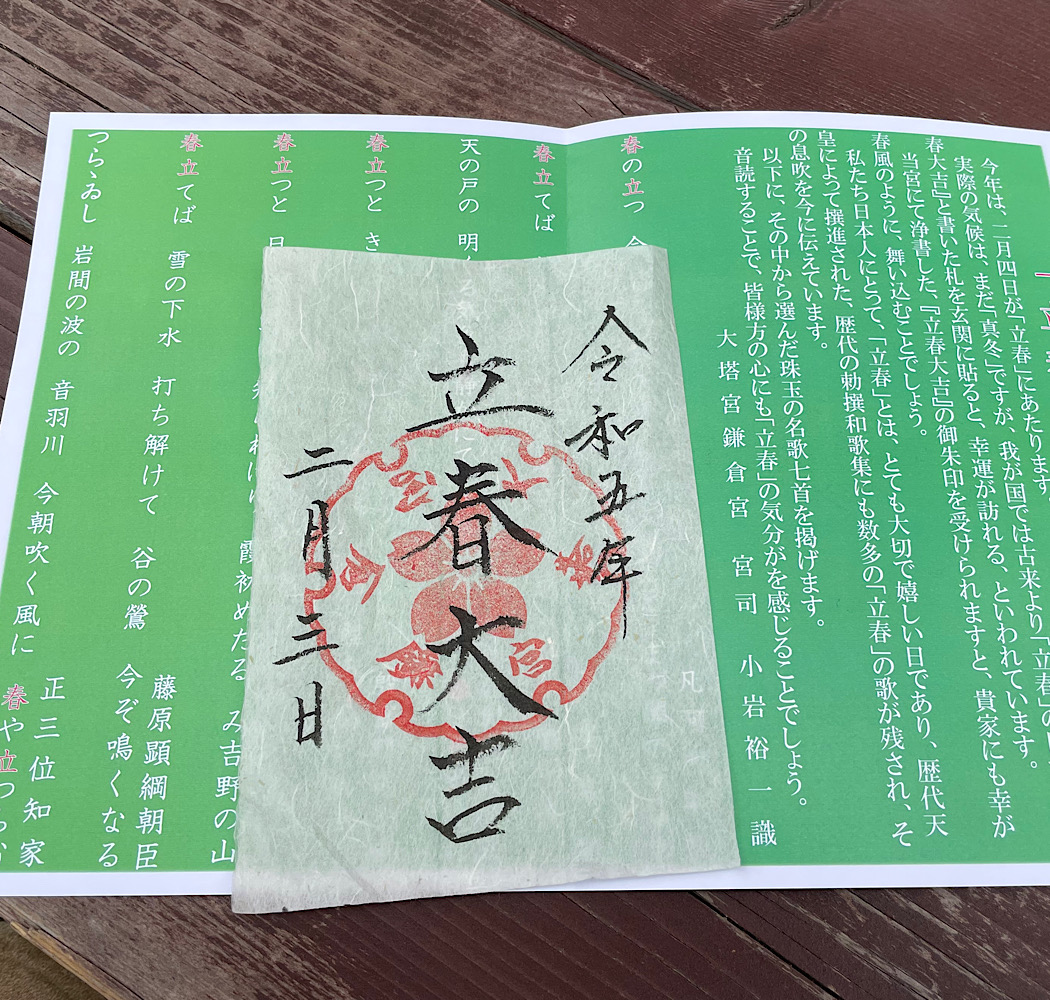 今年は、二月四日が「立春」にあたります
実際の気候は、まだ「真冬」ですが、我が国では古来より「立春
春大吉』と書いた札を玄関に貼ると、幸運が訪れる、といわれています。
当宮にて浄書した、『立春大吉』の御朱印を受けられますと、貴家にも幸が
春風のように、舞い込むことでしょう。
私たち日本人にとって、「立春」とは、とても大切で嬉しい日であり、歴代天
皇によって撰進された、歴代の勅撰和歌集にも数多の「立春」の歌が残され、そ
の息吹を今に伝えています。
以下に、その中から選んだ珠玉の名歌七首を掲げます。
音読することで、皆様方の心にも「立春」の気分がを感じることでしょう。
大塔宮鎌倉宮 宮司 小岩裕一 識
春の立つ
凡
春立てば
天の戸の 明
春立つと き
春立つと 日
霞初めたる み吉野の山
藤原顕綱朝臣
春立てば 雪の下水 打ち解けて 谷の鶯 今ぞ鳴くなる
正三位知家
つらゝゐし 岩間の波の 音羽川 今朝吹く風に 春や立つ
令和五年
立春大吉
二月三日